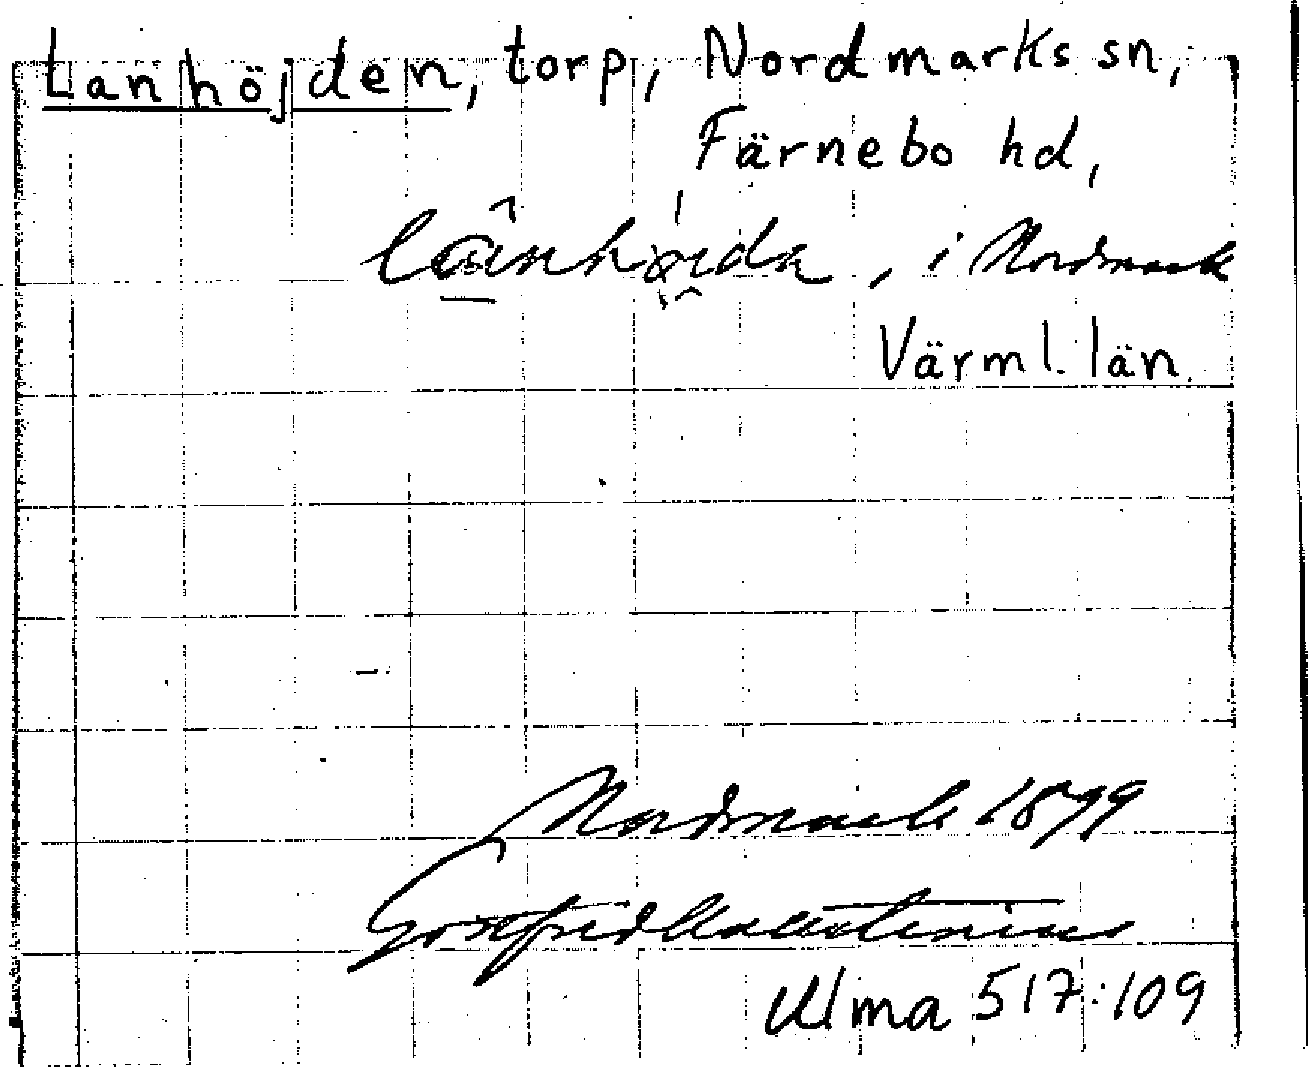 Lanhöjden, torp, Nordmarks sn,
Färnebo hd,
i Nordmark
Värml. län.
Nordmark 1899
Gottfrid Kallstenius
Ulma 517:109